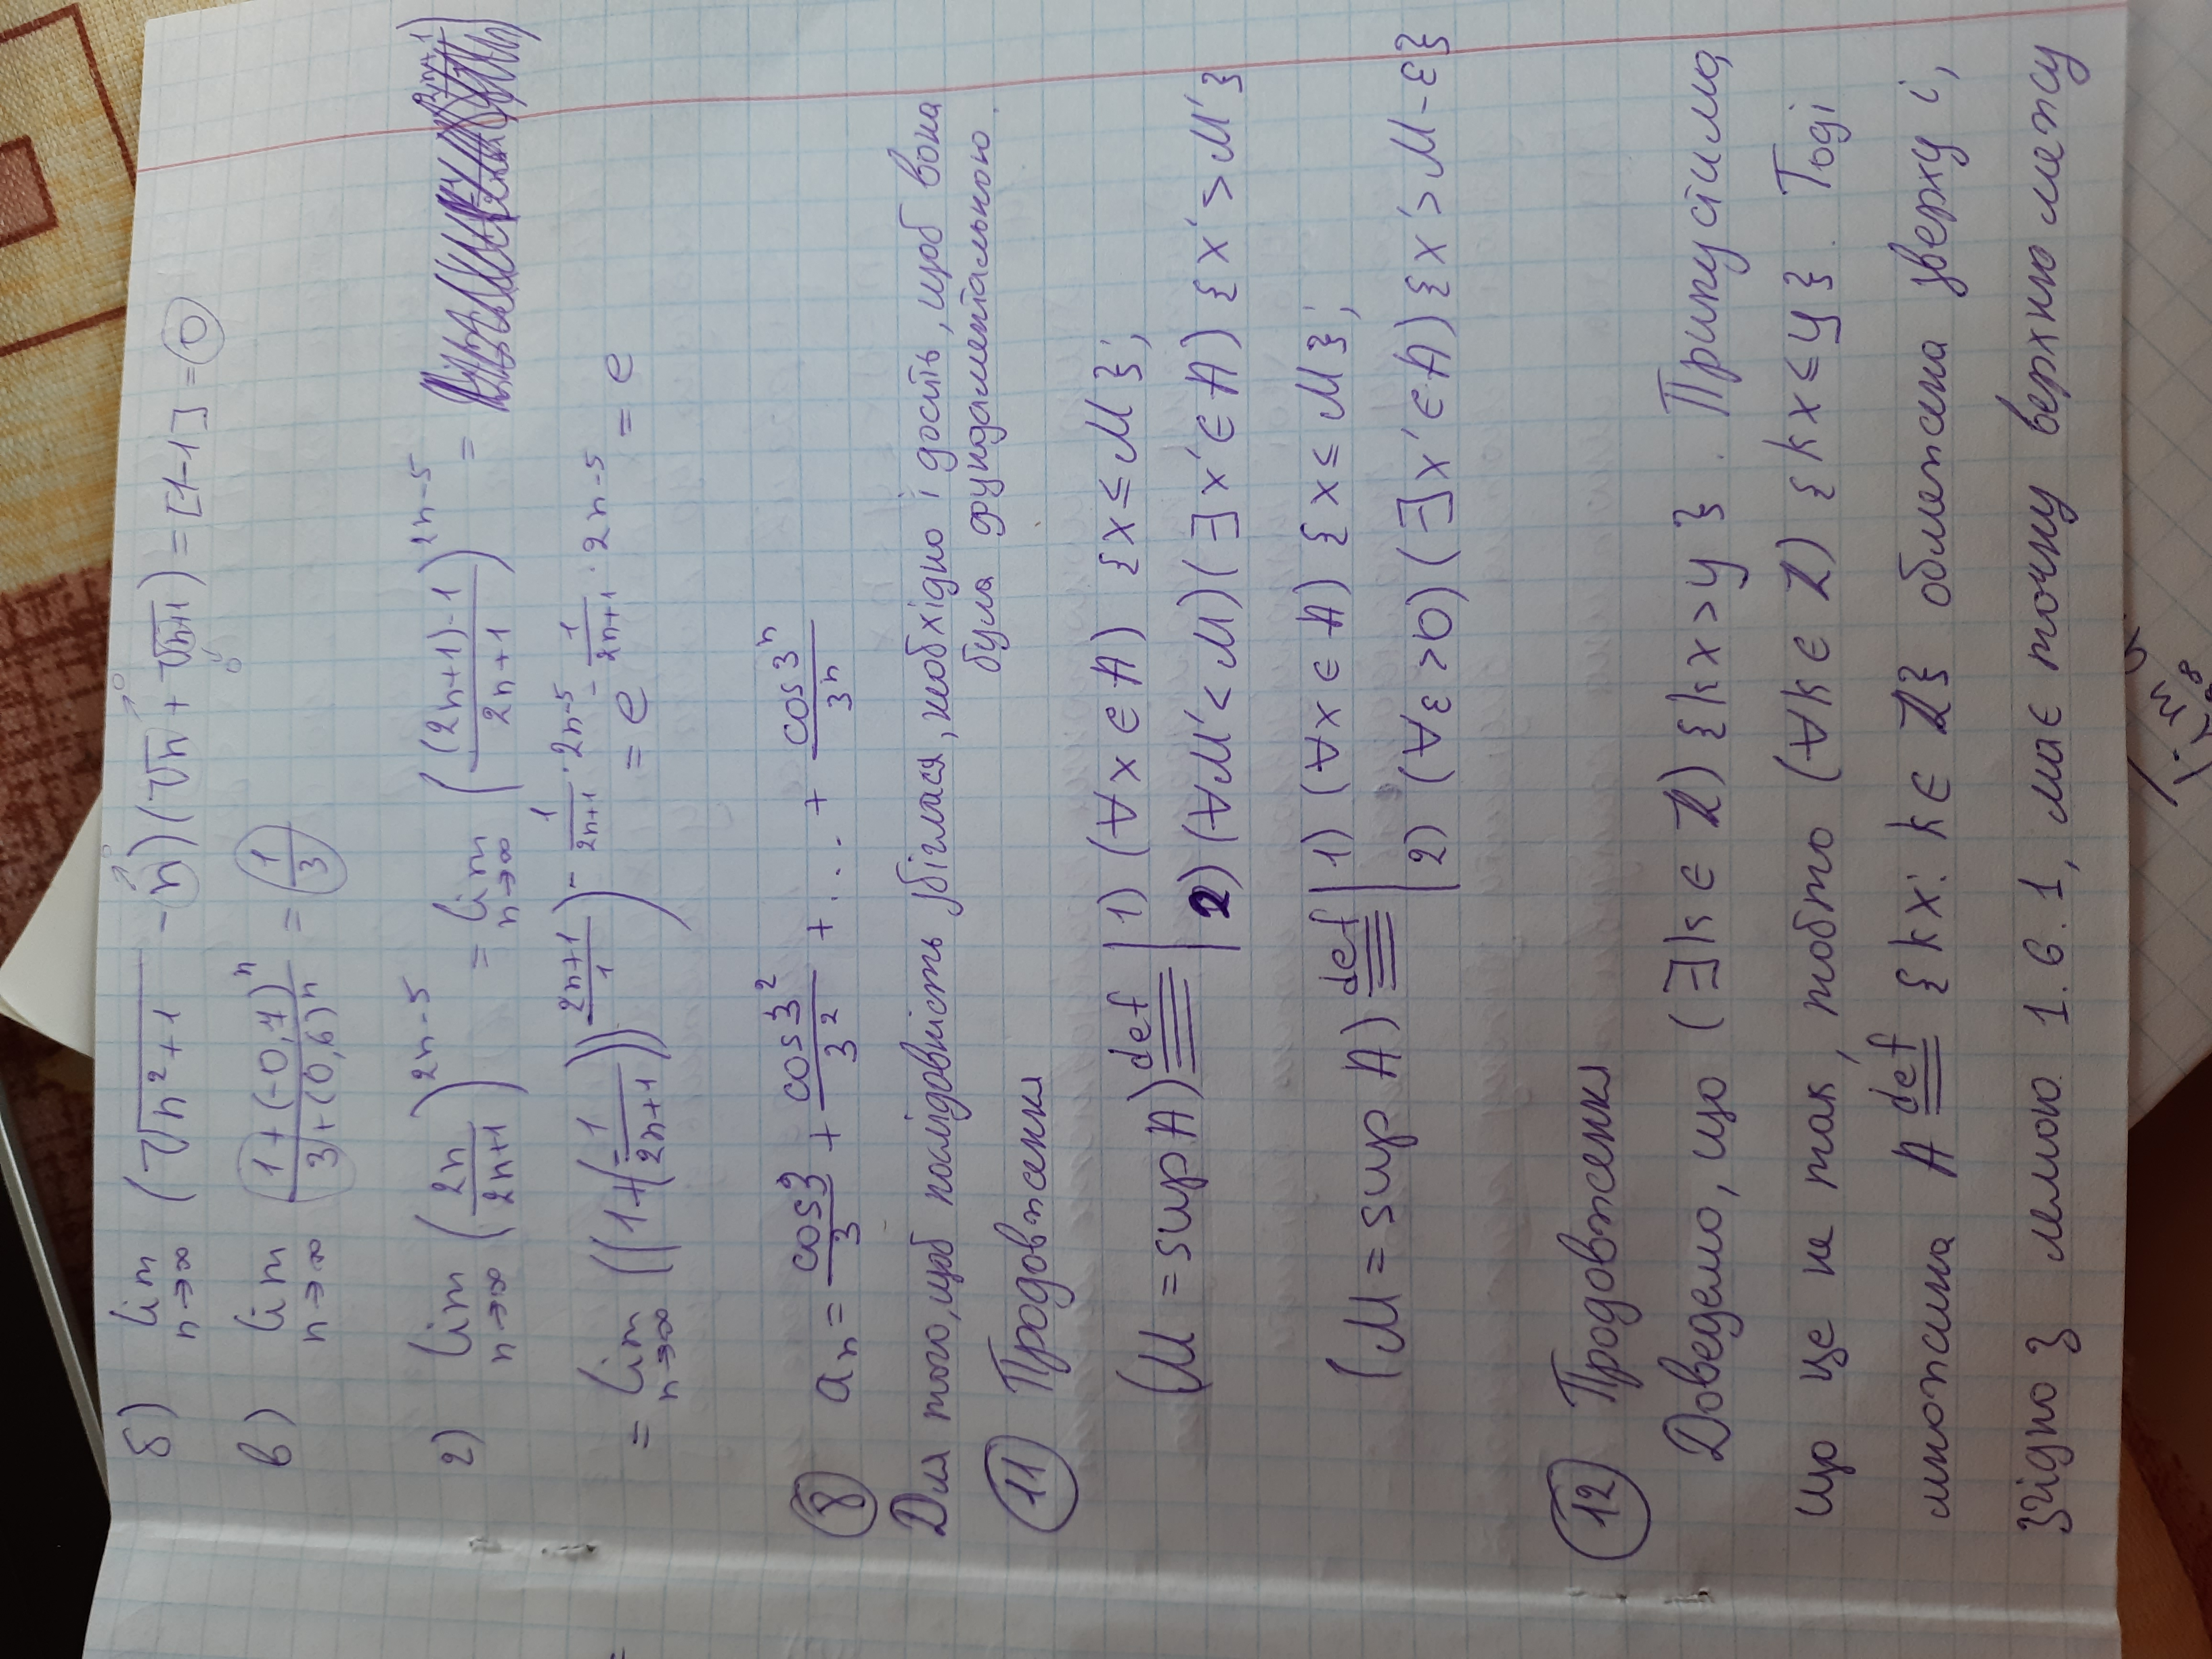 б) lim n→∞ (√(n²+1) - n)(√n + √(n+1)) = [1-1] = 0
в) lim n→∞ (1+(-0,7)ⁿ)/(3+(0,6)ⁿ) = 1/3
г) lim n→∞ (2n/(2n+1))^(2n-5) = lim n→∞ (((2n+1)-1)/(2n+1))^(2n-5) =
= lim n→∞ ((1+(-1/(2n+1)))^((2n+1)/1))^(-1/(2n+1) · 2n-5) = e^(-1/(2n+1) · 2n-5) = e
8 aₙ = cos3/3 + cos3²/3² + ... + cos3ⁿ/3ⁿ
Для того, щоб послідовність збіглася, необхідно і досить, щоб вона
була фундаментальною.
11 Продовження
(M = sup A) def≡ | 1) (∀x ∈ A) {x ≤ M};
2) (∀M' < M)(∃x' ∈ A) {x' > M'}
(M = sup A) def≡ | 1) (∀x ∈ A) {x ≤ M};
2) (∀ε > 0)(∃x' ∈ A){x' > M-ε}
12 Продовження
Доведемо, що (∃k ∈ ℤ) {kx > y}. Припустимо,
що це не так, тобто (∀k ∈ ℤ) {kx ≤ y}. Тоді
множина A def= {kx: k ∈ ℤ} обмежена зверху і,
згідно з лемою 1.6.1, має точну верхню межу
lim